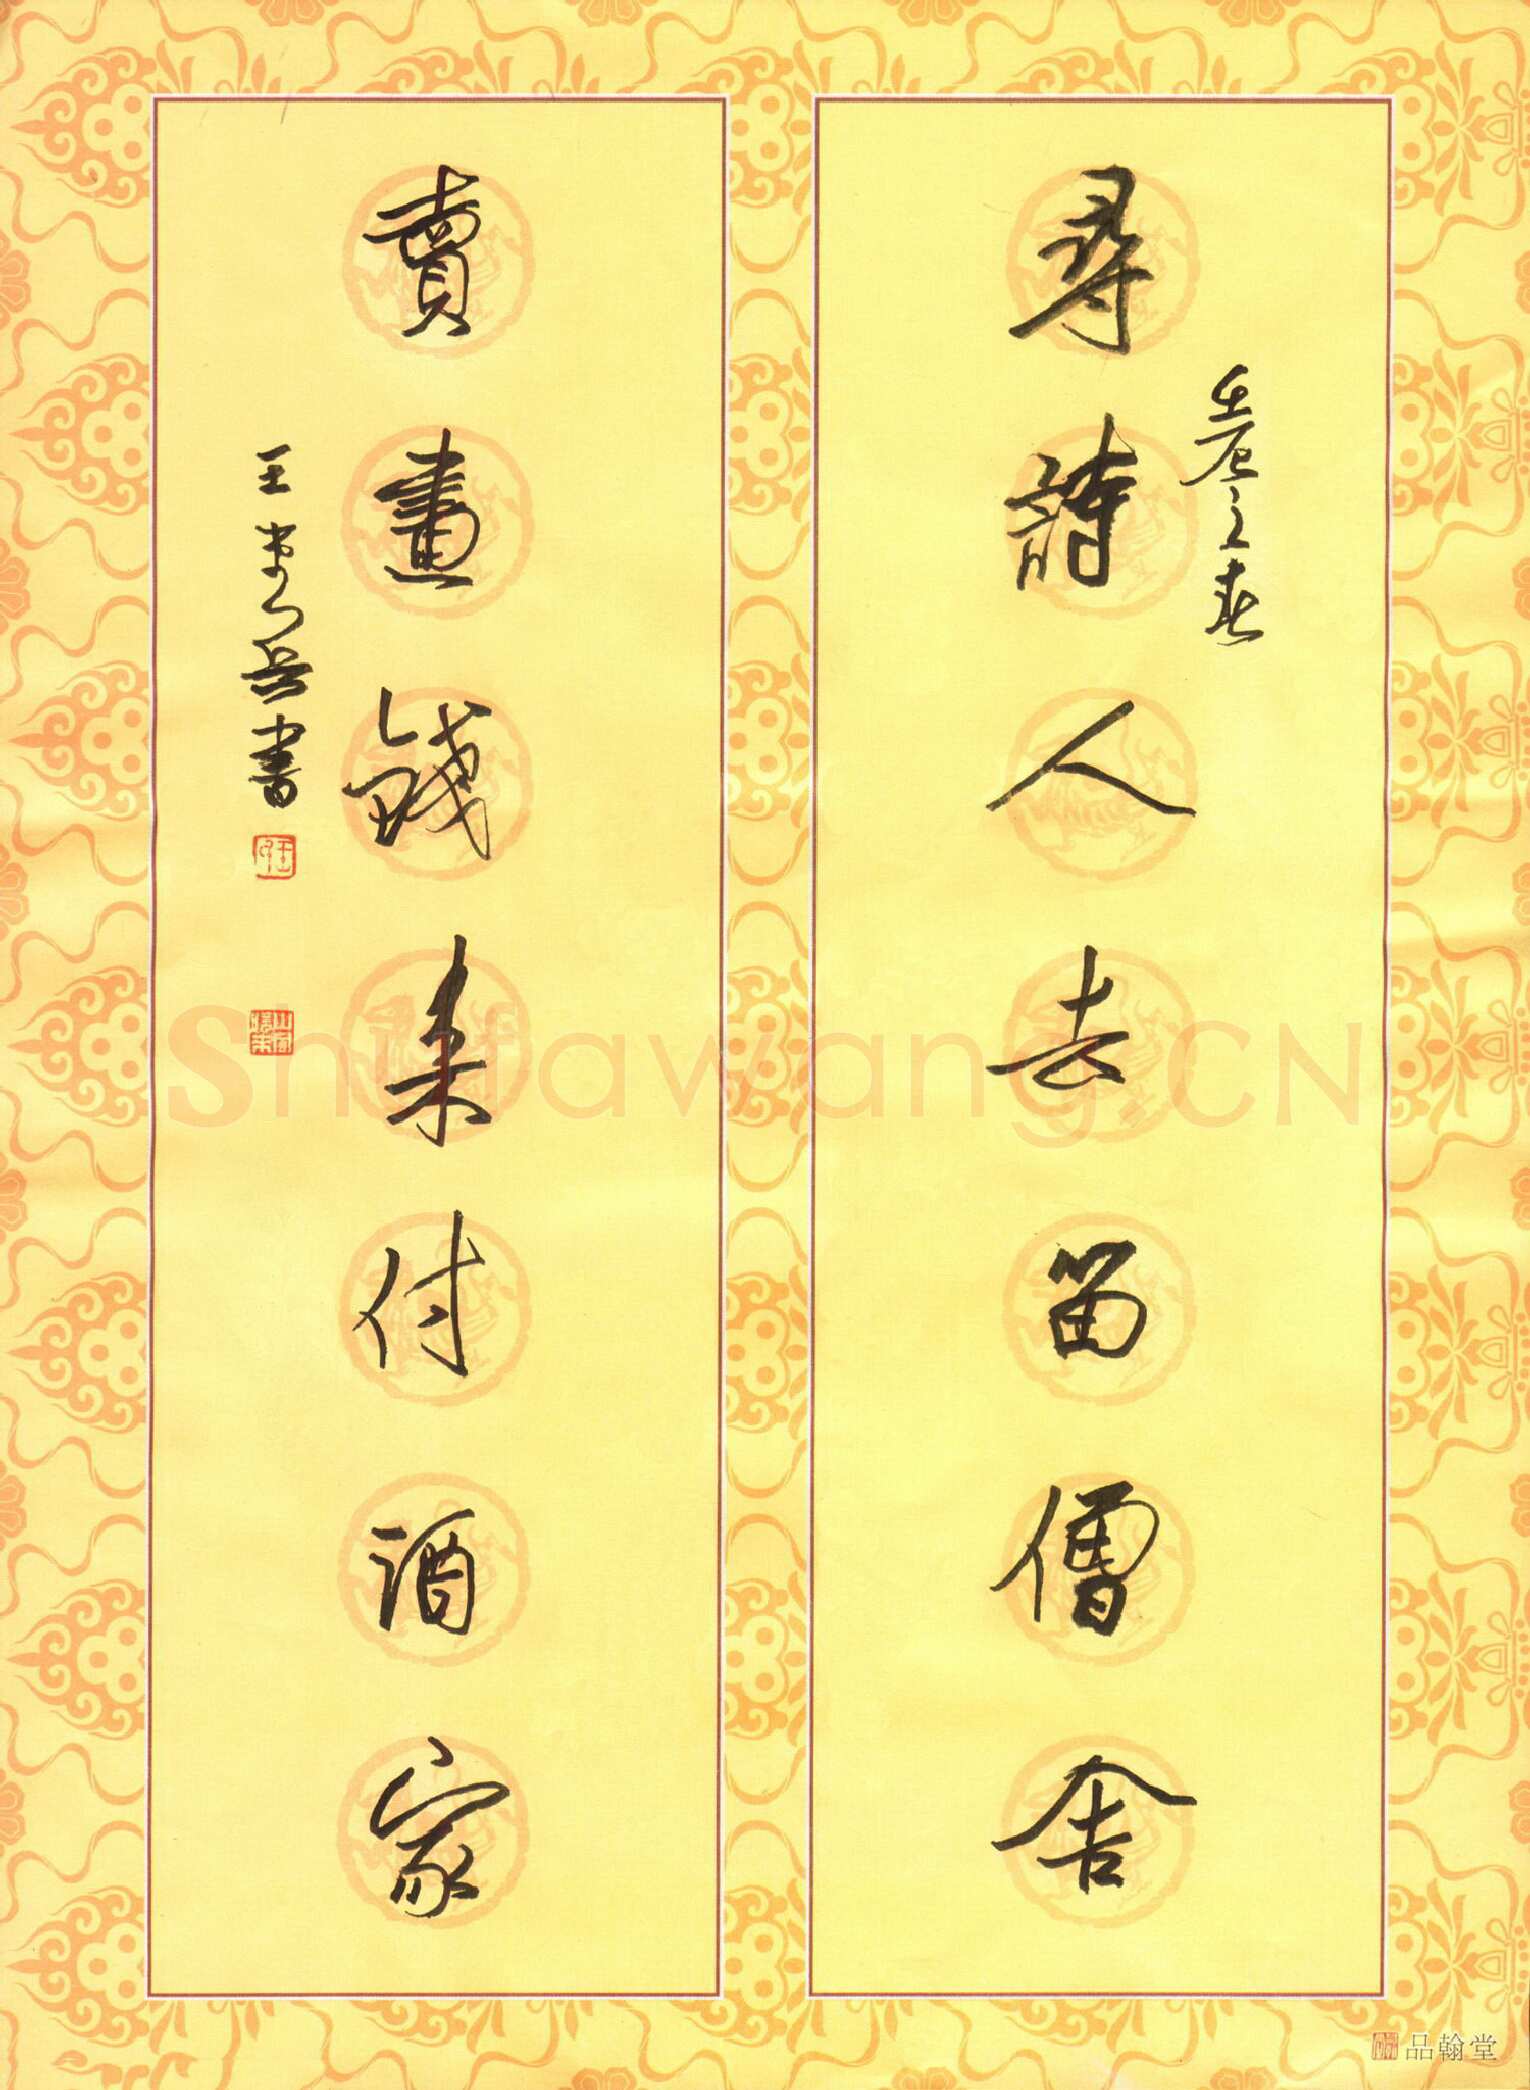 尋詩人去留僧舍
壬辰之春
賣畫錢来付酒家
王岳書
ShufawangCN
品翰堂